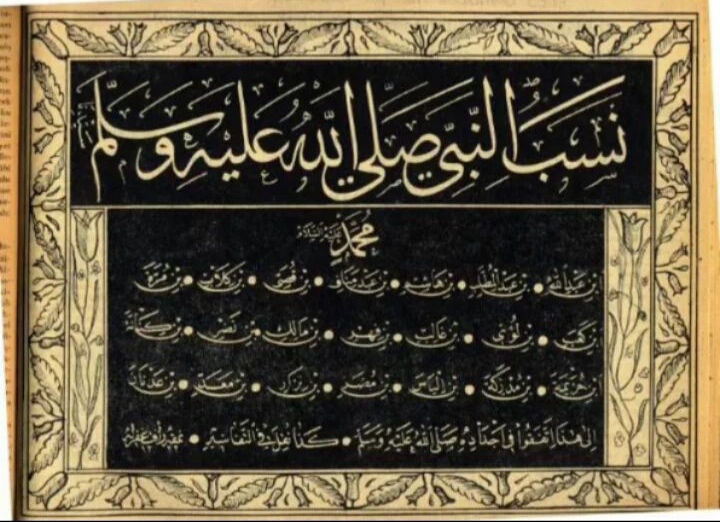 نَسَبُ النَّبِيِّ صَلَّى اللهُ عَلَيْهِ وَسَلَّمَ
مُحَمَّد عَلَيْهِ السَّلَام
ابن عبد الله • بن عبد المطلب • بن هاشم • بن عبد مناف • بن قصي • بن كلاب • بن مرة
بن كعب • بن لؤي • بن غالب • بن فهر • بن مالك • بن نضر • بن كنانة
ابن خزيمة • بن مدركة • بن الياس • بن مضر • بن نزار • بن معد • بن عدنان
الى هنا اتفقوا في اجداده صلى الله عليه وسلم • كذا نقلت في التفاسير •